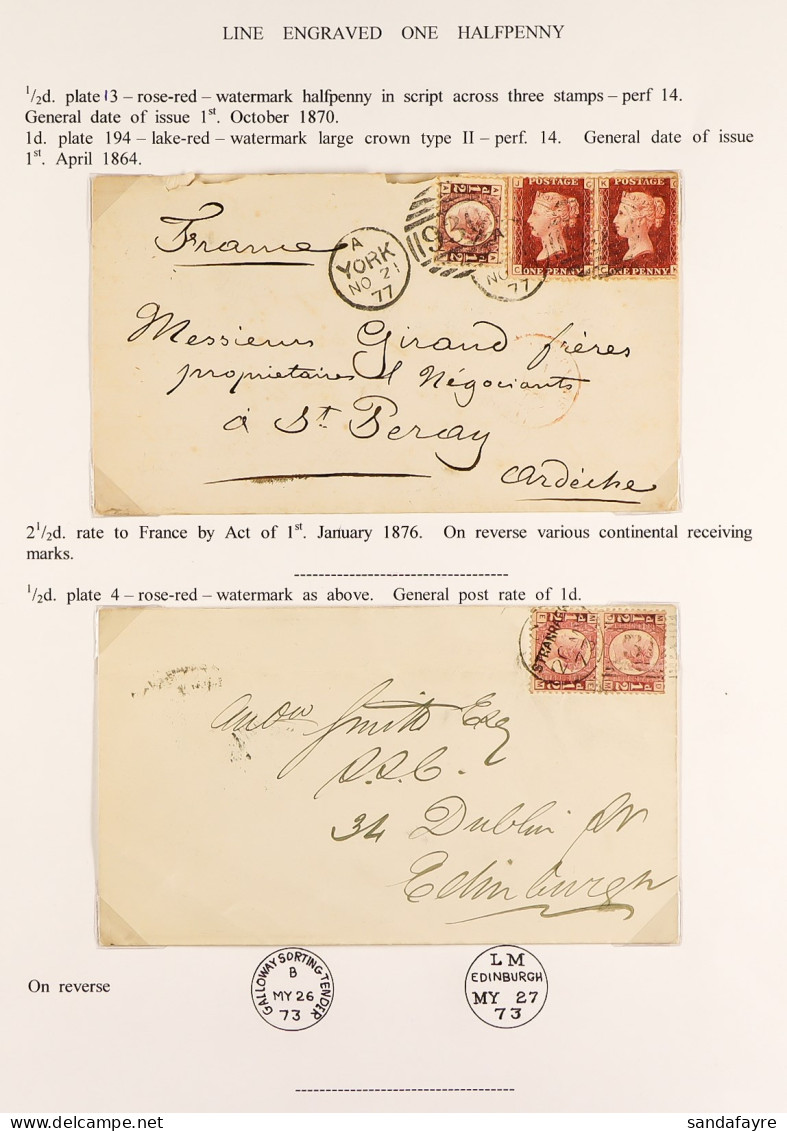 LINE ENGRAVED ONE HALFPENNY
1/2d. plate 13 – rose-red – watermark halfpenny in script across three stamps – perf 14.
General date of issue 1st. October 1870.
1d. plate 194 – lake-red – watermark large crown type II – perf. 14. General date of issue
1st. April 1864.
France
A
YORK
NO 21
77
POSTAGE
ONE PENNY
POSTAGE
ONE PENNY
NO
77
Messieurs Girand frères
proprietaires & Négociants
à St Peray
Ardèche
2 1/2d. rate to France by Act of 1st. January 1876. On reverse various continental receiving
marks.
1/2d. plate 4 – rose-red – watermark as above. General post rate of 1d.
Smith Esq
S.S.C.
34 Dublin St
Edinburgh
On reverse
GALLOWAY SORTING-TENDER
B
MY 26
73
LM
EDINBURGH
MY 27
73
sandafayre